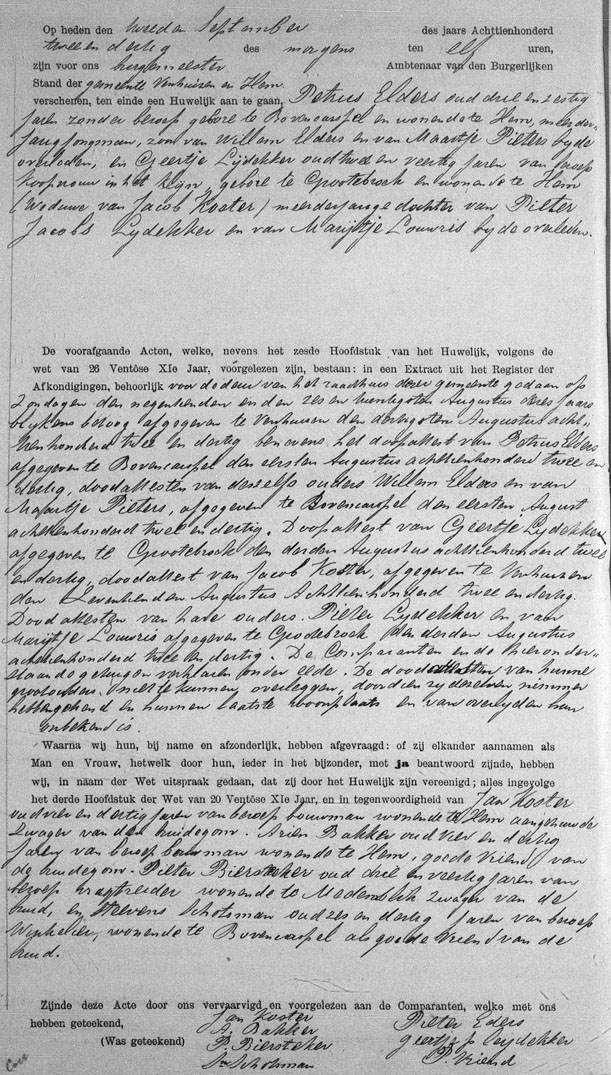 Op heden den tweeden September des jaars Achttienhonderd
twee en dertig des morgens ten elf uren,
zijn voor ons burgemeester Ambtenaar van den Burgerlijken
Stand der gemeente Venhuizen en Hem
verschenen, ten einde een Huwelijk aan te gaan, Petrus Elders oud drie en zestig
jaren zonder beroep gebore te Bovencarspel en wonende te Hem, meerder
jarig jongman, zoon van Willem Elders en van Maartje Pieters byde
overleden, en Geertje Lydekker oud twee en veertig jaren van beroep
Koopvrouw in het klijn, gebore te Grootebroek en wonende te Hem
(Weduwe van Jacob Koster) meerderjarige dochter van Pieter
Jacobs Lydekker en van Marijtje Louwris byde overleden.
De voorafgaande Acten, welke, nevens het zesde Hoofdstuk van het Huwelijk, volgens de
wet van 26 Ventôse XIe Jaar, voorgelezen zijn, bestaan: in een Extract uit het Register der
Afkondigingen, behoorlijk voor de deur van het raadhuis dezer gemeente gedaan op
Zondagen den negentienden en den zes en twentigsten Augustus dezes jaars
blykens betoog afgegeven te Venhuizen den dertigsten Augustus acht-
tienhonderd twee en dertig benevens het doopattest van Petrus Elders
afgegeven te Bovencarspel den eersten Augustus achttienhonderd twee en
dertig, doodattesten van deszelfs ouders Willem Elders en van
Maartje Pieters, afgegeven te Bovencarspel den eersten August
achttienhonderd twee en dertig. Doopattest van Geertje Lydekker
afgegeven te Grootebroek den derden Augustus achttienhonderd twee
en dertig, doodattest van Jacob Koster, afgegeven te Venhuizen
den Augustus Achttienhonderd twee en dertig.
Doodattesten van hare ouders. Pieter Lydekker en van
Marijtje Louwris afgegeven te Grootebroek den derden Augustus
achttienhonderd twee en dertig. De Comparanten en de hieronder
staande getuigen verklaren onder eede. De doodattesten van hunne
grootouders niet te kunnen overleggen, doordien zy dezelven nimmer
hebben gekend en hunnen laatste woonplaats en van overlyden hun
onbekend is.
Waarna wij hun, bij name en afzonderlijk, hebben afgevraagd: of zij elkander aannamen als
Man en Vrouw, hetwelk door hun, ieder in het bijzonder, met ja beantwoord zijnde, hebben
wij, in naam der Wet uitspraak gedaan, dat zij door het Huwelijk zijn vereenigd; alles ingevolge
het derde Hoofdstuk der Wet van 20 Ventôse XIe Jaar, en in tegenwoordigheid van Jan Koster
oud vier en dertig jaren van beroep bouwman wonende te Hem aangehuwde
Zwager van den bruidegom. Arien Bakker oud vier en dertig
jaren van beroep bouwman wonende te Hem, goede vriend van
de bruidegom. Pieter Biersteker oud drie en veertig jaren van
beroep wonende te Medemblik Zwager van de
bruid, en Stevens Schotsman oud zes en dertig jaren van beroep
Winkelier, wonende te Bovencarspel als goede Vriend van de
bruid.
Zijnde deze Acte door ons vervaarvigd en voorgelezen aan de Comparanten, welke met ons
hebben geteekend,
Jan Koster Pieter Elders
A. Bakker Geertje P Leydekker
(Was geteekend) P. Biersteker P. Vriend
Schotsman